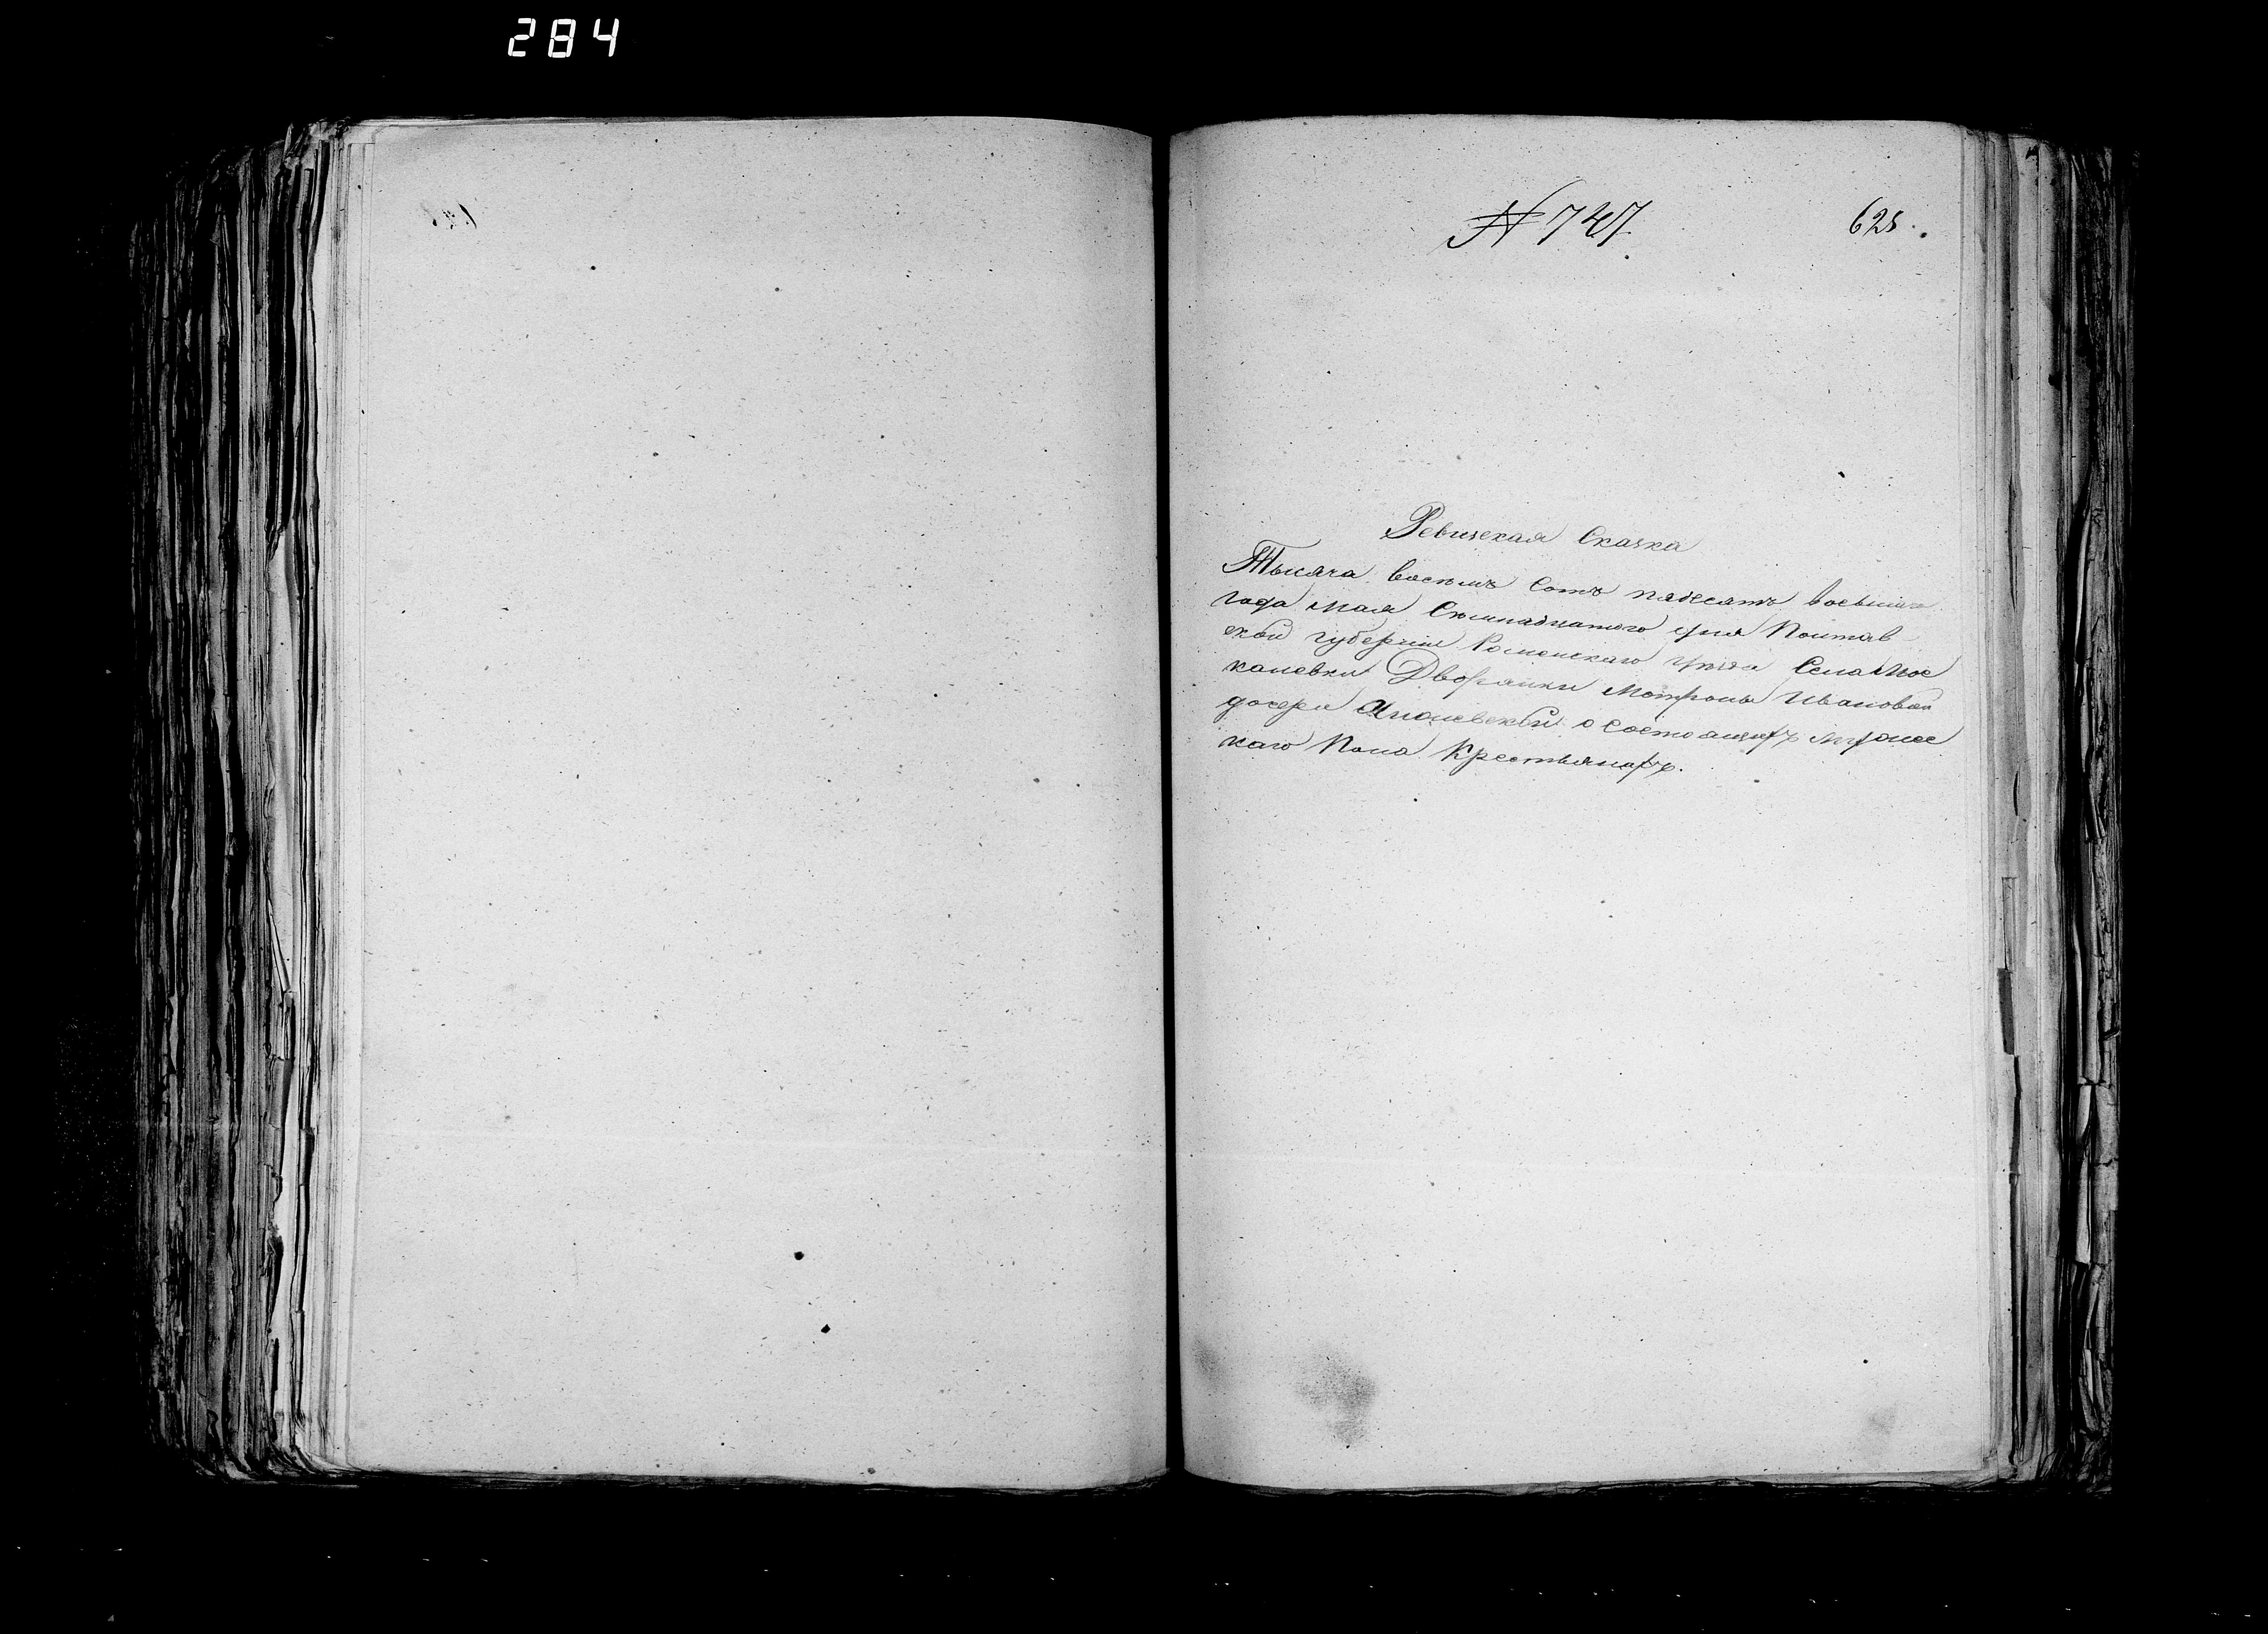 284
№ 747
628.
Ревизская Сказка
Тысяча восемъ сотъ пядесятъ восьмаго
года мая Семнадцатого дня Полтав-
ской губернии Роменскаго уѣзда Села Мос
калевки Дворянки Мотроны Ивановой
дочери о состоящихъ мужес
каго пола Крестьянахъ.